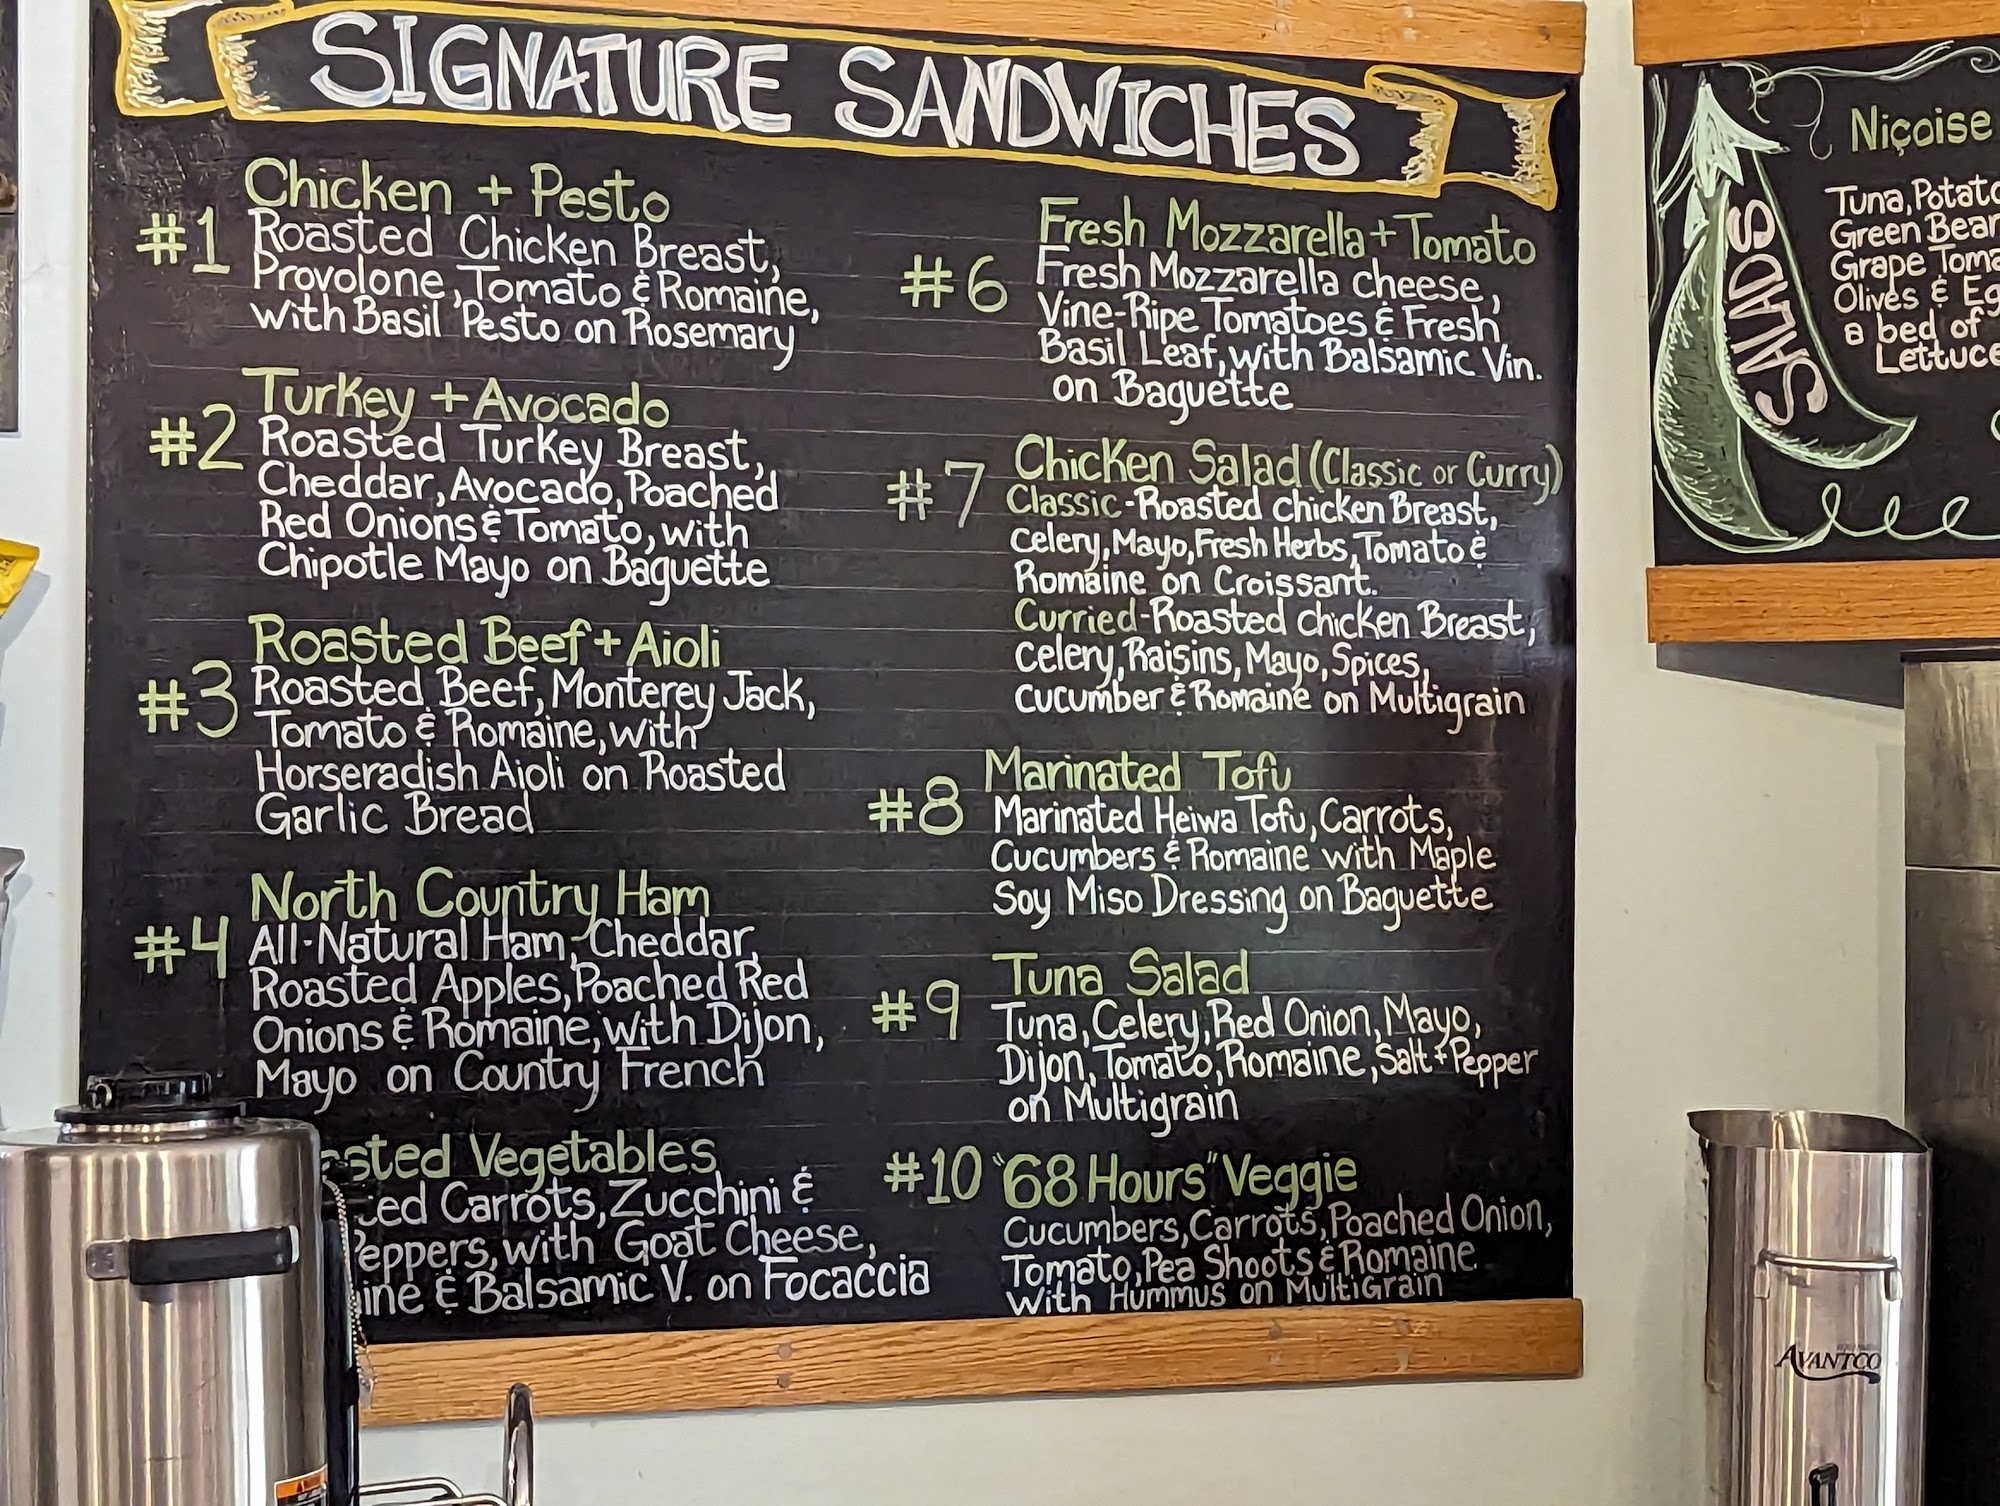 SIGNATURE SANDWICHES
#1
Chicken + Pesto
Roasted Chicken Breast,
Provolone, Tomato & Romaine,
with Basil Pesto on Rosemary
#2
Turkey + Avocado
Roasted Turkey Breast,
Cheddar, Avocado, Poached
Red Onions & Tomato, with
Chipotle Mayo on Baguette
#3
Roasted Beef + Aioli
Roasted Beef, Monterey Jack,
Tomato & Romaine, with
Horseradish Aioli on Roasted
Garlic Bread
#4
North Country Ham
All-Natural Ham, Cheddar,
Roasted Apples, Poached Red
Onions & Romaine, with Dijon,
Mayo on Country French
Vegetables
Carrots, Zucchini &
Peppers, with Goat Cheese,
& Balsamic V. on Focaccia
#6
Fresh Mozzarella + Tomato
Fresh Mozzarella cheese,
Vine-Ripe Tomatoes & Fresh
Basil Leaf, with Balsamic Vin.
on Baguette
#7
Chicken Salad (Classic or Curry)
Classic-Roasted chicken Breast,
Celery, Mayo, Fresh Herbs, Tomato &
Romaine on Croissant.
Curried-Roasted chicken Breast,
Celery, Raisins, Mayo, Spices,
Cucumber & Romaine on Multigrain
#8
Marinated Tofu
Marinated Heiwa Tofu, Carrots,
Cucumbers & Romaine with Maple
Soy Miso Dressing on Baguette
#9
Tuna Salad
Tuna, Celery, Red Onion, Mayo,
Dijon, Tomato, Romaine, Salt + Pepper
on Multigrain
#10
"68 Hours" Veggie
Cucumbers, Carrots, Poached Onion,
Tomato, Pea Shoots & Romaine
with Hummus on MultiGrain
SALADS
Niçoise
Tuna, Potato
Green Bean
Grape Toma
Olives & Eg
a bed of
Lettuce
AVANTCO